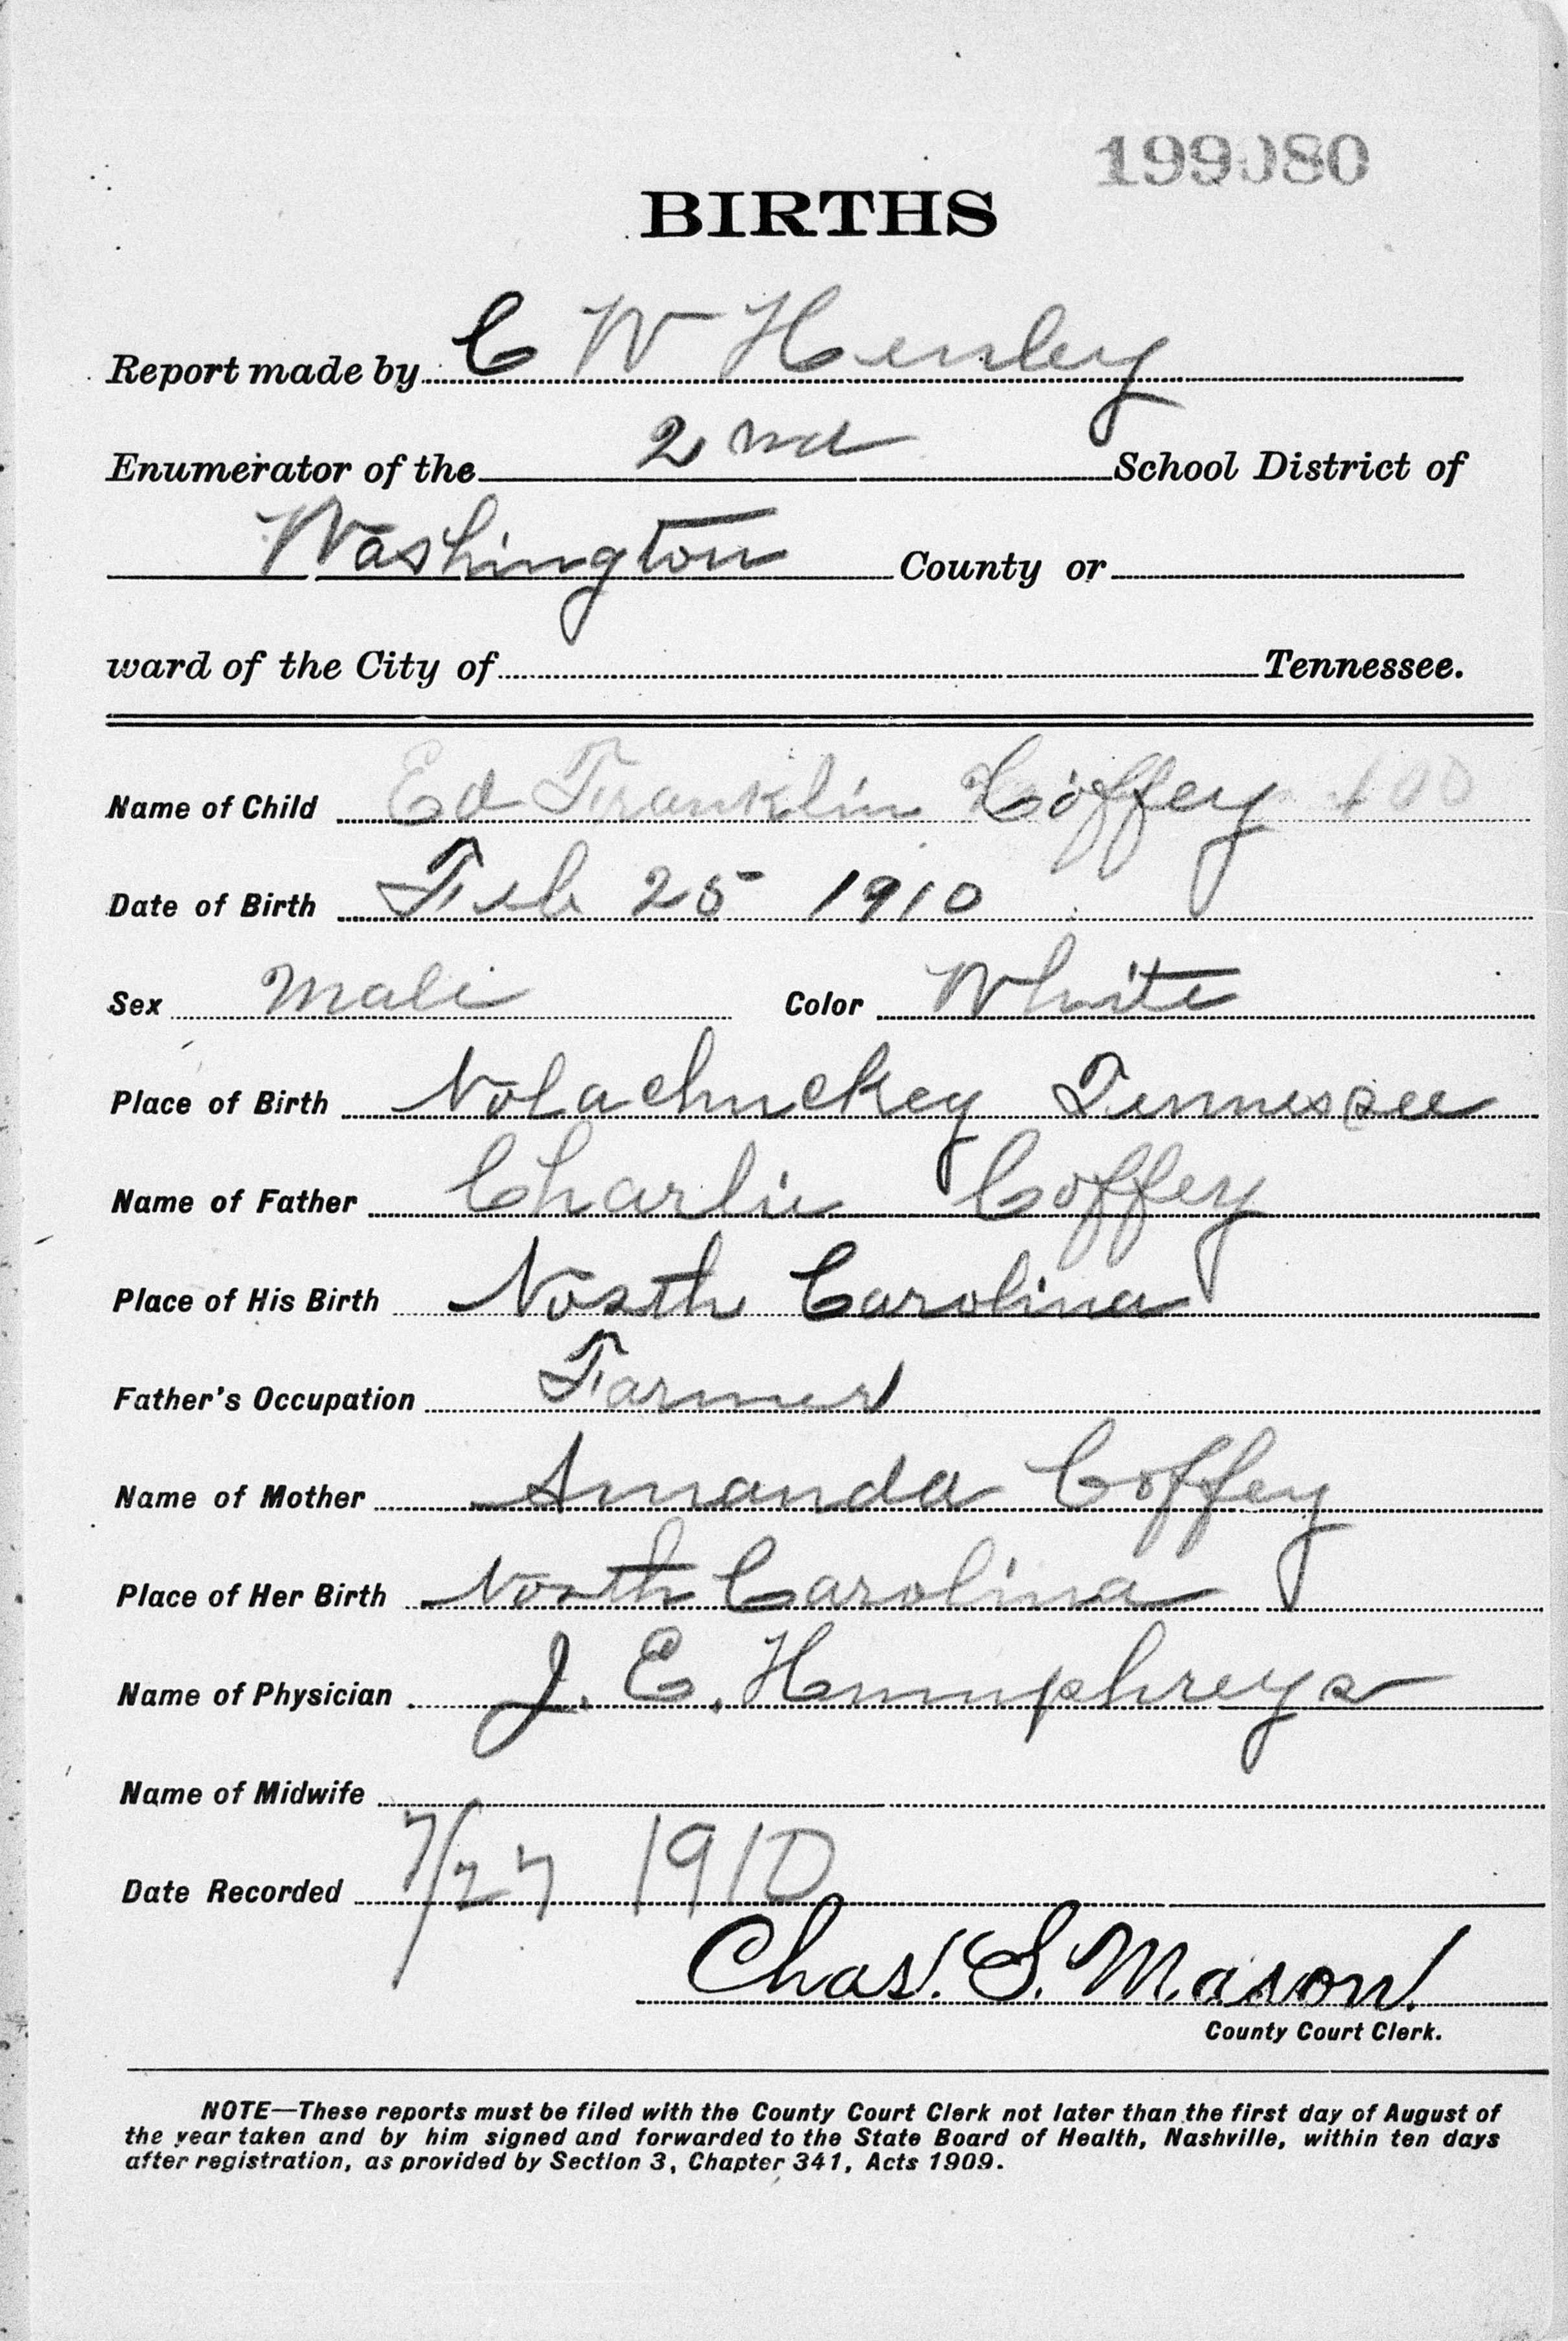 199080
BIRTHS
Report made by C W Henley
Enumerator of the 2nd School District of
Washington County or
ward of the City of Tennessee.
Name of Child Ed Franklin Coffey 400
Date of Birth Feb 25 1910
Sex Male Color White
Place of Birth Nolachuckey Tennessee
Name of Father Charlie Coffey
Place of His Birth North Carolina
Father's Occupation Farmer
Name of Mother Amanda Coffey
Place of Her Birth North Carolina
Name of Physician J. E. Humphreys
Name of Midwife
Date Recorded 7/27 1910
Chas. S. Mason.
County Court Clerk.
NOTE—These reports must be filed with the County Court Clerk not later than the first day of August of
the year taken and by him signed and forwarded to the State Board of Health, Nashville, within ten days
after registration, as provided by Section 3, Chapter 341, Acts 1909.